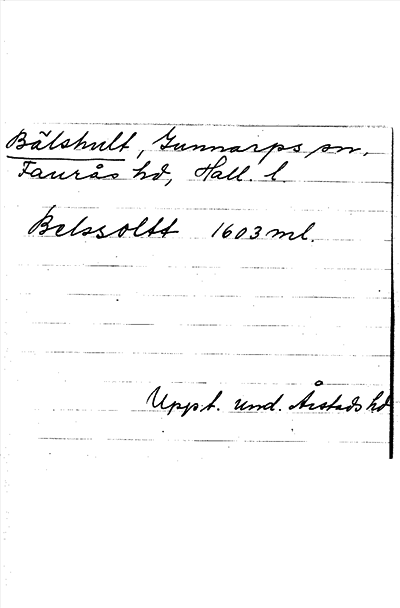 Bälshult, Gunnarps sn,
Faurås hd, Hall. l.
Belssoltt 1603 ml.
Uppt. und. Årstads hd